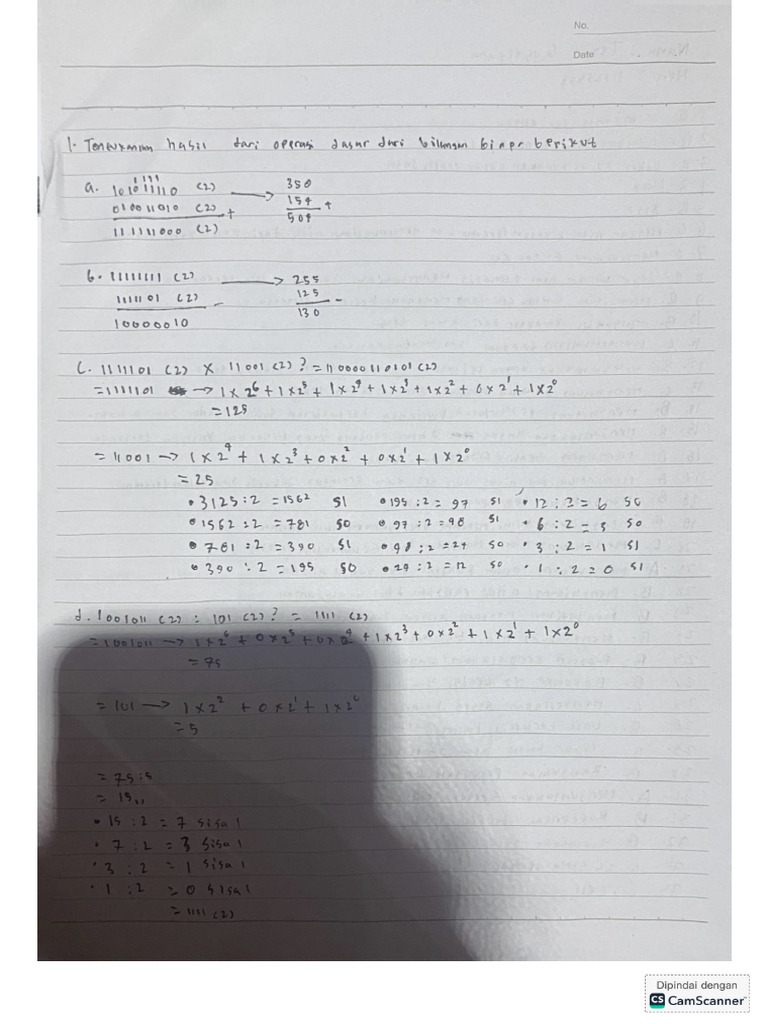 No.
Date
1. Tentukanlah hasil dari operasi dasar dari bilangan biner berikut
1111
a. 101011110 (2) → 350
010011010 (2) + 154 +
111111000 (2) 504
b. 11111111 (2) → 255
1111101 (2) - 125 -
10000010 130
C. 1111101 (2) X 11001 (2) ? = 110000110101 (2)
= 1111101 → 1 x 2⁶ + 1 x 2⁵ + 1 x 2⁴ + 1 x 2³ + 1 x 2² + 0 x 2¹ + 1 x 2⁰
= 125
= 11001 → 1 x 2⁴ + 1 x 2³ + 0 x 2² + 0 x 2¹ + 1 x 2⁰
= 25
• 3125 : 2 = 1562 S1 • 195 : 2 = 97 S1 • 12 : 2 = 6 S0
• 1562 : 2 = 781 S0 • 97 : 2 = 48 S1 • 6 : 2 = 3 S0
• 781 : 2 = 390 S1 • 48 : 2 = 24 S0 • 3 : 2 = 1 S1
• 390 : 2 = 195 S0 • 24 : 2 = 12 S0 • 1 : 2 = 0 S1
d. 1001011 (2) : 101 (2) ? = 1111 (2)
= 1001011 → 1 x 2⁶ + 0 x 2⁵ + 0 x 2⁴ + 1 x 2³ + 0 x 2² + 1 x 2¹ + 1 x 2⁰
= 75
= 101 → 1 x 2² + 0 x 2¹ + 1 x 2⁰
= 5
= 75 : 5
= 15,,
• 15 : 2 = 7 sisa 1
• 7 : 2 = 3 sisa 1
• 3 : 2 = 1 sisa 1
• 1 : 2 = 0 sisa 1
= 1111 (2)
Dipindai dengan
CS CamScanner